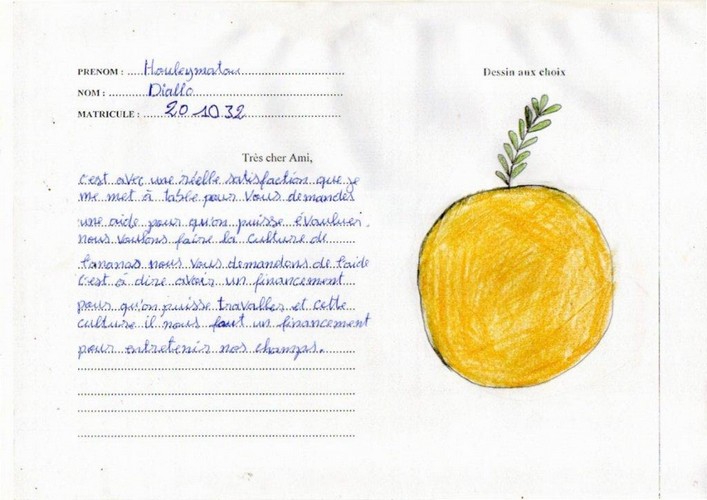 PRENOM : Houleymatou
NOM : Diallo
MATRICULE : 201032
Dessin aux choix
Très cher Ami,
c'est avec une réelle satisfaction que je
me met à table pour vous demandés
une aide pour qu'on puisse évauluer.
nous voulons faire la culture de
l'ananas nous vous demandons de l'aide
c'est à dire avoir un financement
pour qu'on puisse travailler et cette
culture il nous faut un financement
pour entretenir nos champs.